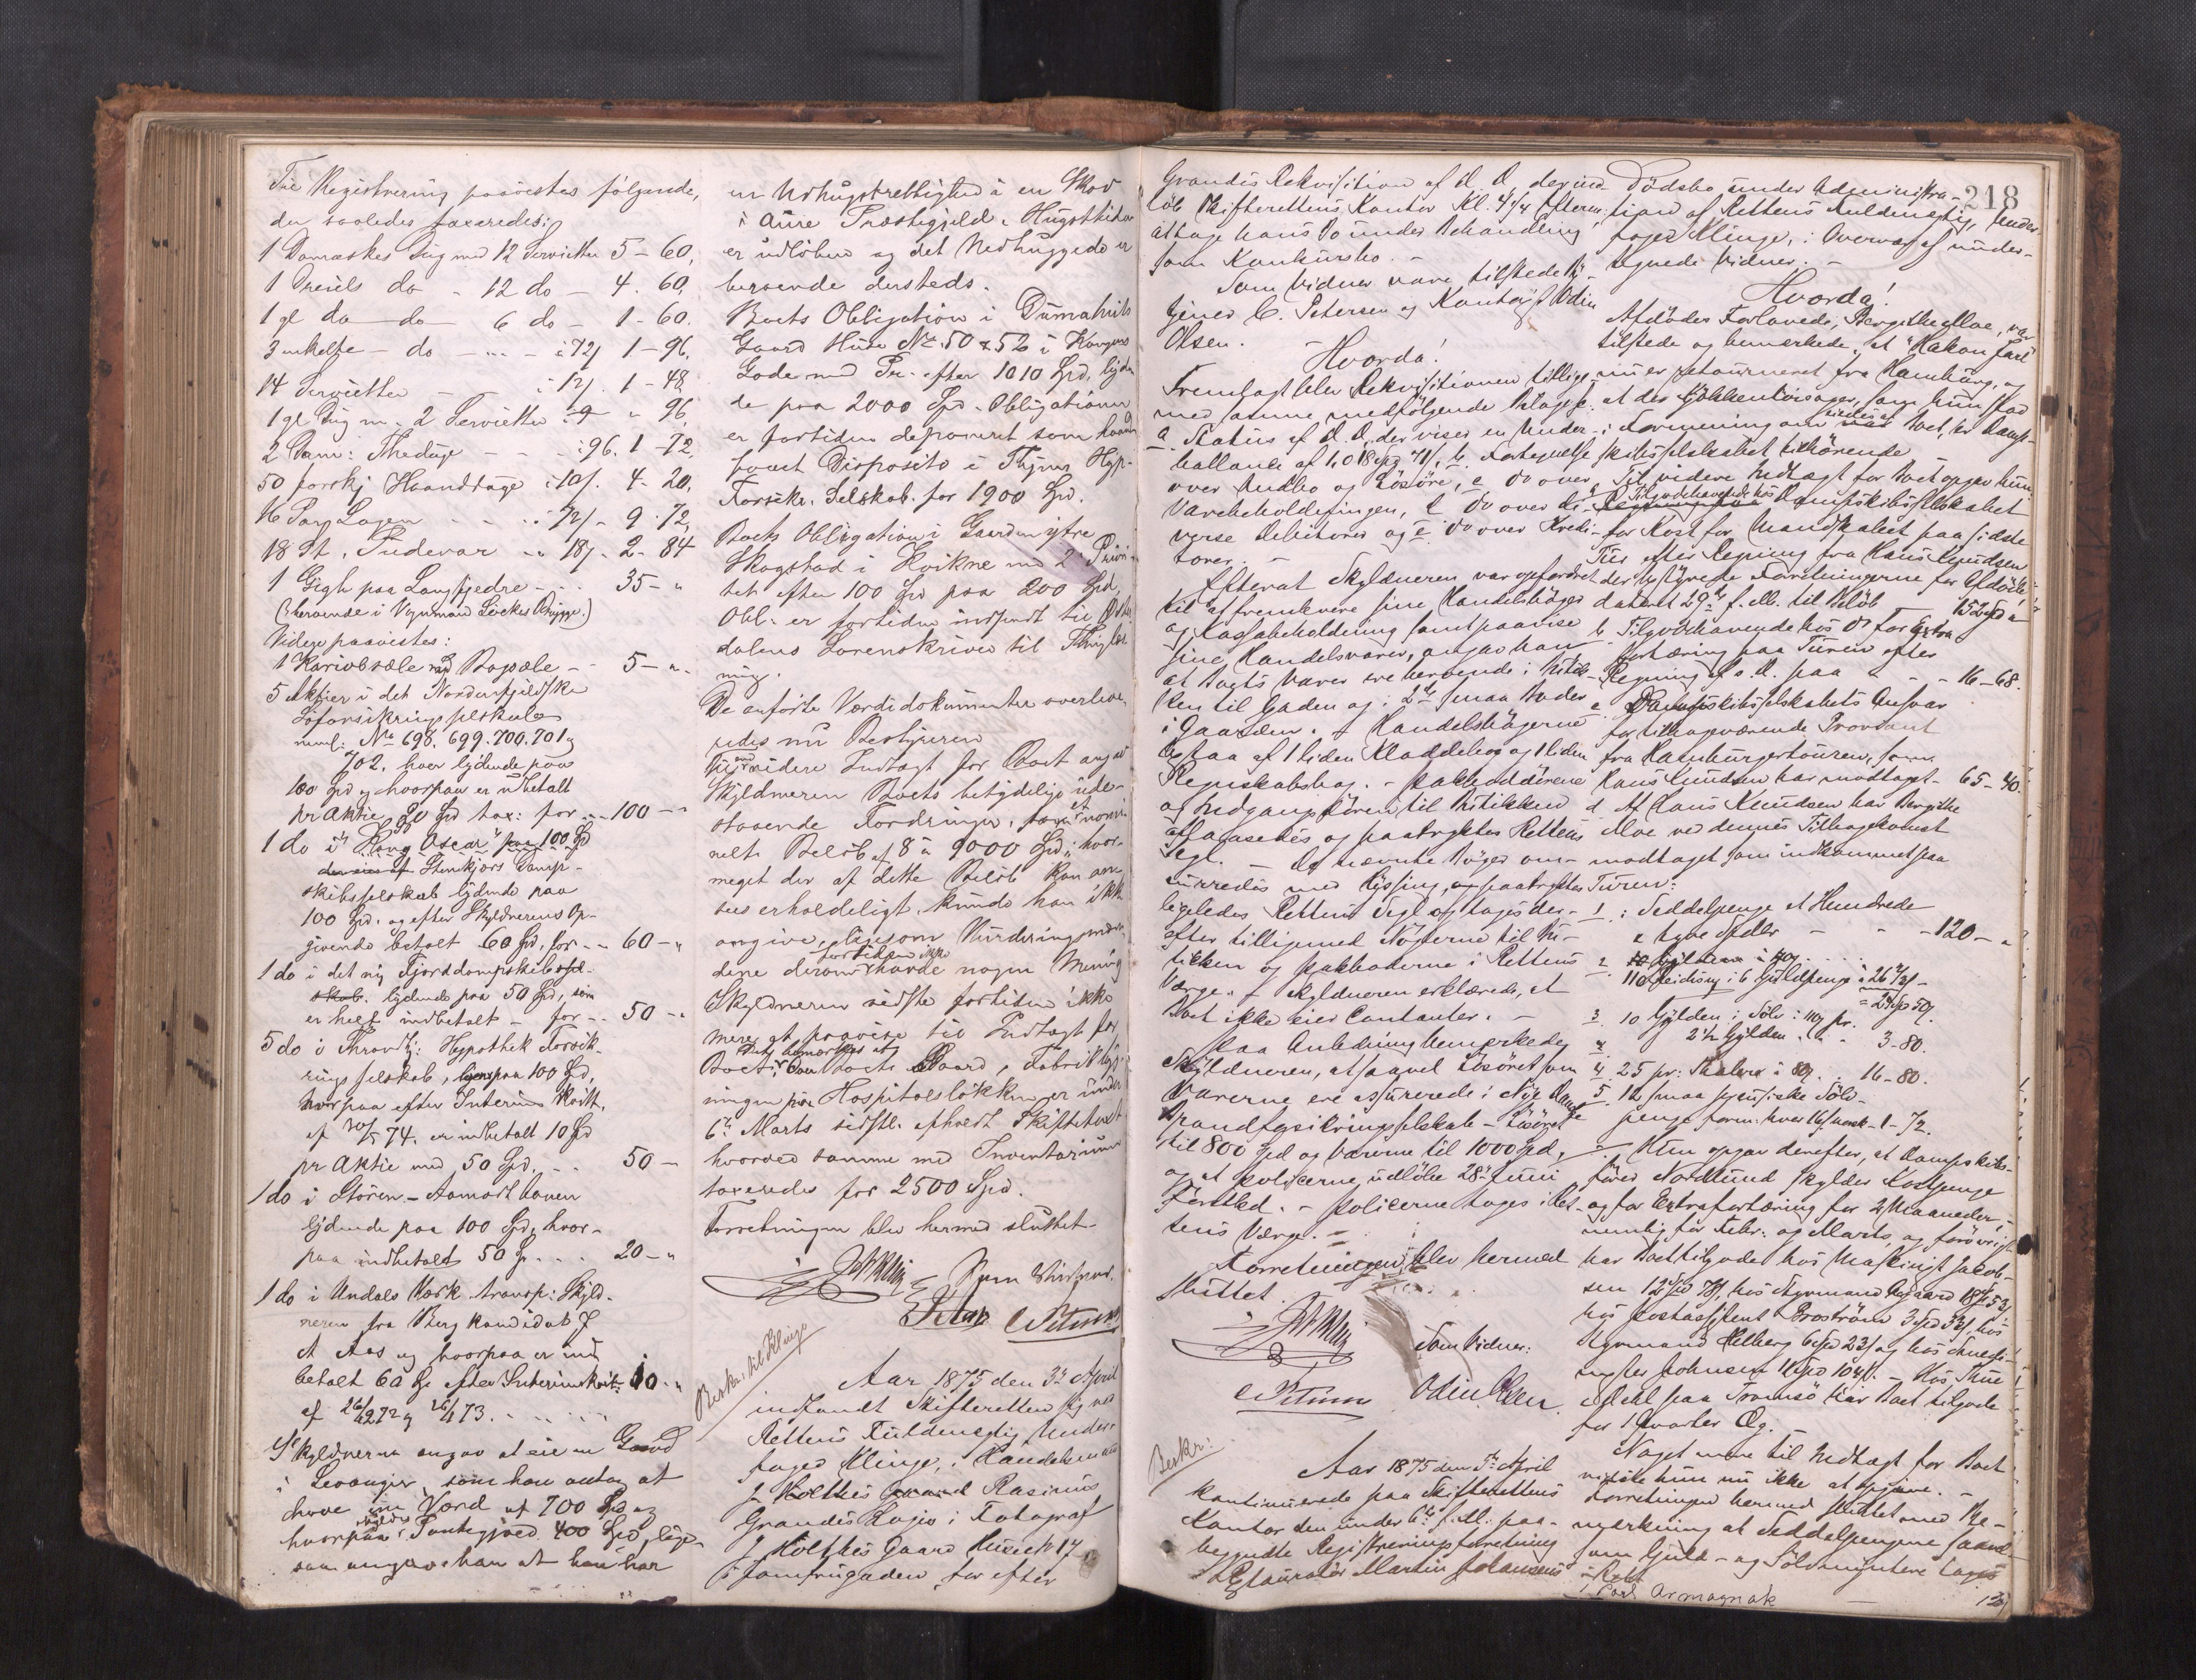 Til Registrering paavistes følgende,
der saaledes taxeredes:
1 Damaskes Dug med 12 Servietter 5 - 60,
1 Dreiels do - 12 do - 4. 60,
1 gl do - do - 6 do - 1 - 60.
3 enkelte do - ... - à 72/ 1 - 96,
14 Servietter - - à 12/. 1 - 48
1 gl Dug m. 2 Servietter " 96,
2 Dam: Theduge - - à 96. 1 - 92,
50 forskj Haandduge à 10/. 4 - 20,
16 Par Lagen - - - à 72/ - 9 . 72,
18 St. Pudevar - à 18/. - 2 - 84
1 Gigh paa Langfjedre - - 35 - "
(beroende i Vognmand Lückes Brygge.)
Videre paavistes:
1 Kariolsæle med Bogsæle - - 5 - "
5 Aktier i det Nordenfjeldske
Søforsikringsselskab
neml: No 698. 699. 700. 701 og
702. hver lydende paa
100 Spd og hvorpaa er indbetalt
pr Aktie 20 Spd tax: for - 100 - "
1 do i "Kong Oscar" paa 100 Spd
Stenkjærs Damp-
skibsselskab lydende paa
100 Spd. og efter Skyldnerens Op-
givende betalt 60 Spd, for - - 60 - "
1 do i det ny Fjorddampskibssel-
skab. lydende paa 50 Spd, som
er helt indbetalt - for - - 50 - "
5 do i Throndhj: Hypothek Forsik-
rings selskab, paa 100 Spd,
hvorpaa efter Interims Kvitt.
af 30/5 74. er indbetalt 10 Spd
pr Aktie med 50 Spd. - - 50 -
1 do i Støren - Aamodt banen
lydende paa 100 Spd, hvor-
paa indbetalt 50 Sp. - - 20 - "
1 do i Undals Værk transp: Skyld-
neren fra Berg kandidat J
A Aas og hvorpaa er ind
betalt 60 Sp efter Interimskvit: 10 - "
af 26/4 272 og 26/4 73. - - -
Skyldneren angav at eie en Gaard
i Levanger, som han antog at
have en Værd af 700 Spd og
hvorpaa Pantegjæld 400 Spd, lige-
som angav han at han har
en Udhugstrettighed i en Skov
i Aure Præstegjeld. Hugsttiden
er udløben og det Nedhuggede er
beroende dersteds.
Boets Obligation i Dumahuits
Gaard Huse No 50 & 52 i Kongens
Gade med Pr. efter 1010 Spd, lyden
de paa 2000 Spd - Obligationen
er fortiden deponeret som haand
faaet Disposito i Thjems Hyp-
Forsikr. Selskab. for 1900 Spd.
Boets Obligation i Gaarden ytre
Skogstad i Kvikne med 2' Priori
tet efter 100 Spd paa 200 Spd,
Obl: er fortiden indsendt til Øster
dalens Sorenskriver til Thinglæs
ning.
De anførte Værdidokumenter overleve
redes nu Bestyreren
Til videre Indtægt for Boet angav
Skyldneren Boets betydelige ude-
staaende Fordringer, til et nomi
nelt Beløb af 8 à 9000 Spd; hvor-
meget der af dette Beløb kan an-
sees erholdeligt, kunde han ikke
angive, ligesom Vurderingsmæn
dene derom fortiden ikke havde nogen Mening
Skyldneren vidste fortiden ikke
mere at paavise til Indtægt for
Boet. Dertil bemærkes at Boets Gaard, Fabrikbyg-
ningen paa Hospitalsløkken er under
6te Marts sidstl. afholdt Skiftetaxt
hvorved samme med Inventarium
taxeredes for 2500 Spd.
Forretningen blev hermed sluttet
Som Vidner.
CPetersen
Beskr: til Klinge
Aar 1875 den 3de April
indfandt Skifteretten sig ved
Rettens Fuldmægtig Under-
foged Klinge, i Handelsmand
Rasmus
Grandes Logis i Fotograf
J. Holthes Gaard Huus No 17
i Jomfrugaden, for efter
218
Grandes Rekvisition af D. D. der ind-
løb Skifterettens Kontor Kl. 4 1/4 Efterm:
attage hans Bo under Behandling
som Konkursbo. -
Som Vidner vare tilstede By-
tjener C. Petersen og Kontorist Odin
Olsen. -
Hvorda!
Fremlagt blev Rekvisitionen tillige-
med samme medfølgende Bilag:
a Status af D. D. der viser en Under-
ballance af 1,018 Spd 71/, b. Fortegnelse
over Indbo og Løsøre, c do over
Varebeholdningen, d do over di-
verse Debitorer og e do over Kredi-
torer. -
Efterat Skyldneren var opfordret
til at fremkomme sine Handelsbøger
og Kassabeholdning samt paavise
sine Handelsvarer, angav han
at Boets Varer ere beroende i Butik-
ken til Gaden og i 2de smaa Boder
i Gaarden. - Handelsbøgerne
bestaa af 1 liden Kladdebog og 1 liden
Regnskabsbog. - Pakboddørene
og Indgangsdøren til Butikken
aflaasedes og paatryktes Rettens
Segl. - De nævnte Bøger om-
snørredes med Hyssing, og paatryktes
ligeledes Rettens Segl og toges der-
efter tilligemed Nøglerne til Bu-
tikken og Pakboderne i Rettens
Værge. - Skyldneren erklærede, at
Boet ikke eier Contanter. -
Paa Anledning bemærkede
Skyldneren, at saavel Løsøret som
Varerne ere assurerede i Nye Danske
Brandforsikringsselskab - Løsøret
til 800 Spd og Varerne til 1000 Spd,
og at Policerne udløbe 28de Juni
Førstkd. - Policerne toges i Ret-
tens Værge. =
Forretningen blev hermed
sluttet.
Som Vidner:
CPetersen Odin Olsen.
Beskr:
Aar 1875 den 5te April
kontinuerede paa Skifterettens
Kontor den under 6te f. M: paa-
begyndte Registreringsforretning
i Restauratør Martin Johansens
Dødsbo under Administra-
tion af Rettens Fuldmægtig, Under-
foged Klinge, i Overvær af under-
tegnede Vidner. -
Hvorda!
Afdødes Forlovede, Bergithe Moe, var
tilstede og bemærkede, at "Hakon Jarl"
nu er retourneret fra Hamburg, og
at des Kjøkkentøisager, som hun stod
i Formening om eiedes af Boet, er Damp-
skibsselskabet tilhørende
Til videre Indtægt for Boet opgav hun:
a Tilgodehavende hos Dampskibsselskabet
for Kost for Mandskabet paa sidste
Tur efter Regning fra Hans Knudsen
der bestyrede Forretningerne for Afdøde
dateret 29de f. M. til Beløb - 152 Spd "
b. Tilgodehavende hos do for Extra
fortæring paa Turen efter
Regning af s. D. paa - - - 16 - 68.
c Dampskibsselskabets Ansvar
for tilbageværende Proviant
fra Hamburgertouren, som
Hans Knudsen har modtaget - 65 - 40.
d. Af Hans Knudsen har Bergithe
Moe ved dennes Tilbagekomst
modtaget som indkommet paa
Turen:
1: Seddelpenge et Hundrede
& tyve Spdlr - - - 120 - "
2
110 Reichsm: i 6 Guldpenge à 26 2/3/ -
= 24 Spd 50/.
3. 10 Gylden i Sølv: 110/ pr.
2 1/2 Gylden. - - 3 - 80.
4. 25 pr: Thalere à 80/. . 16 - 80.
5. 12 smaa preusiske Sølv-
penge form: hver 16/ norsk - 1 - 72.
- Hun opgav derefter, at Dampskibs-
fører Nordlund skylder Kostpenge
og for Extrafortæring for 2 Maaneder,
nemlig for Febr. og Marts, og forøvrigt
har Boet tilgode hos Maskinist Jakob-
sen 12 Spd 78/, hos Styrmand Aagaard 18 Spd 53/
hos Postassistent Broström 3 Spd 52/ hos
Styrmand Helberg 6 Spd 23/ og hos Smedi-
mester Johnsen 11 Spd 104/. - Hos Thue
Edahl paa Tromsø har Boet tilgode
for 1 Qvarter Øg.
Noget mere til Indtægt for Boet
vidste hun nu ikke at opgive. -
Forretningen hermed sluttet med Be-
mærkning at Seddelpengene saavel
som Guld- og Sølvmyntene toges
1 Pael Armagnak - 120/